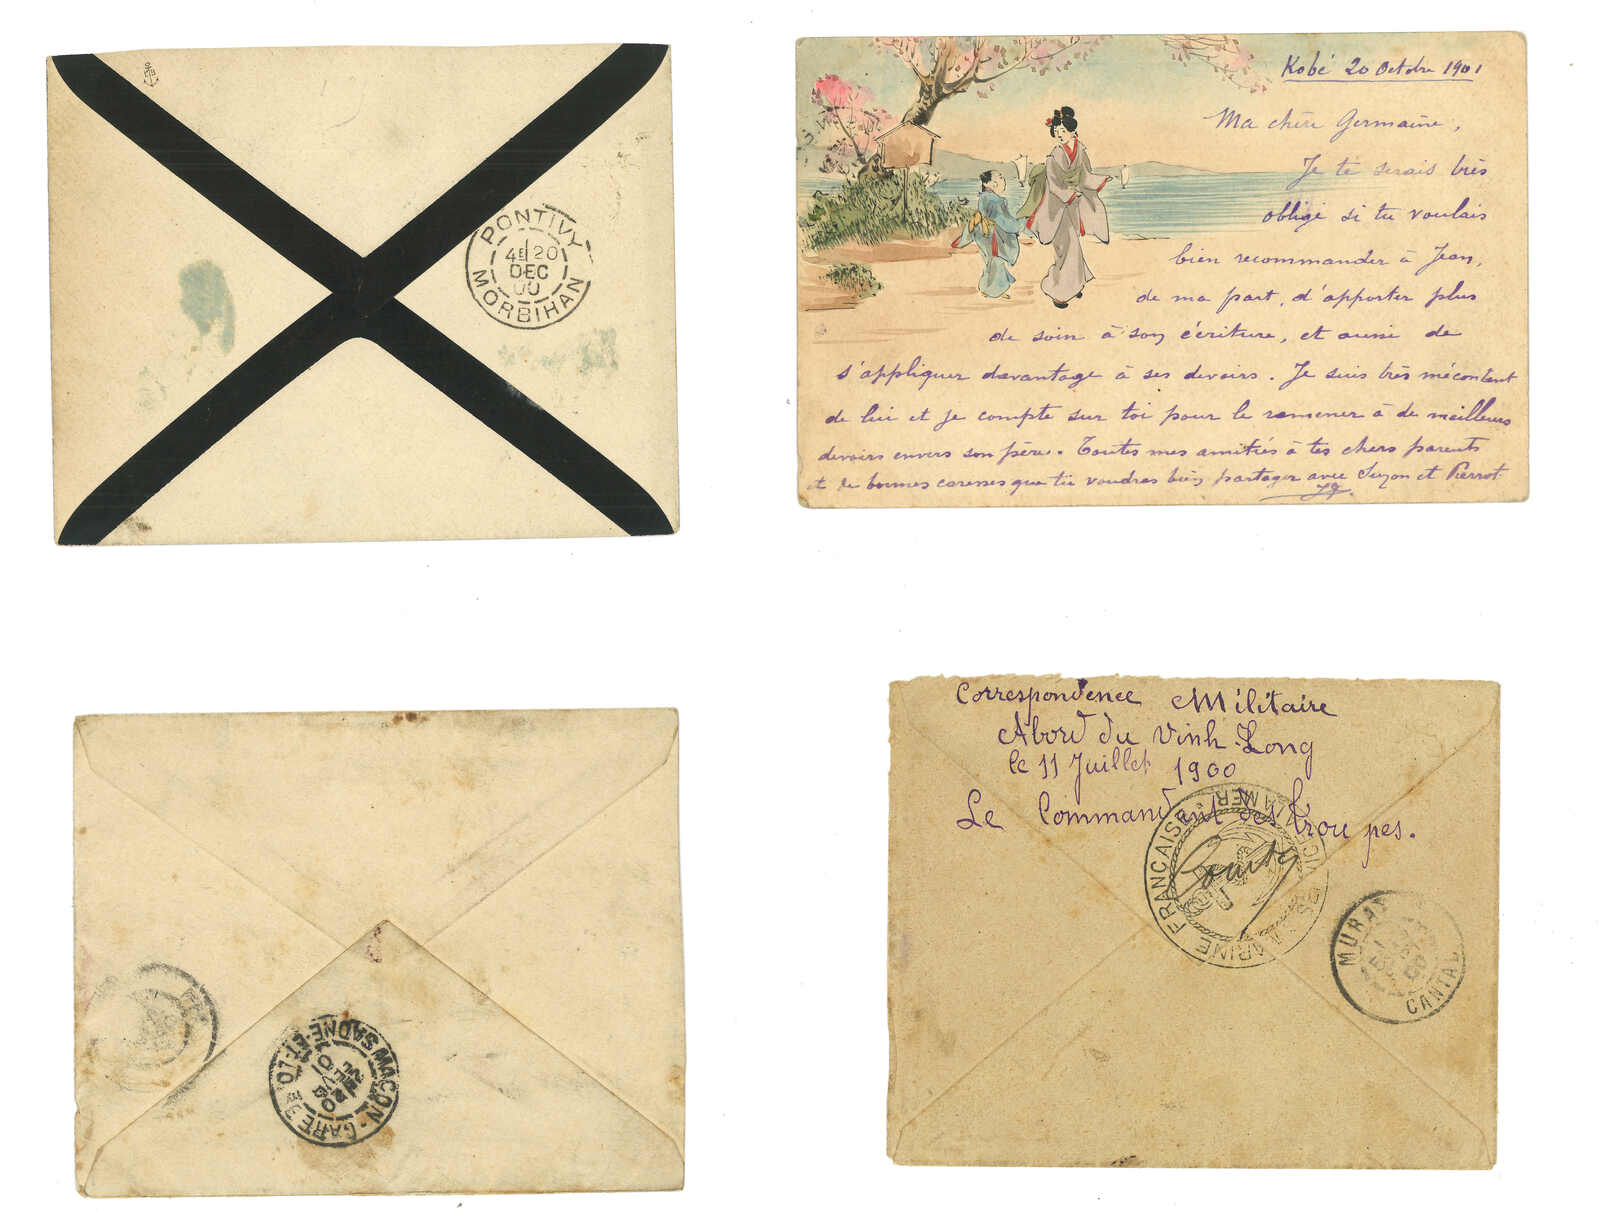 PONTIVY
4E 20
DEC
00
MORBIHAN
Kobé 20 Octobre 1901
Ma chère Germaine,
Je te serais très
obligé si tu voulais
bien recommander à Jean,
de ma part, d'apporter plus
de soin à son écriture, et aussi de
s'appliquer davantage à ses devoirs. Je suis très mécontent
de lui et je compte sur toi pour le ramener à de meilleurs
devoirs envers son père. Toutes mes amitiés à tes chers parents
et de bonnes caresses que tu voudras bien partager avec Suzon et Pierrot
MACON-GARE
SAONE-ET-LO
Correspondence Militaire
Abord du Vinh-Long
le 11 Juillet 1900
Le Commandant des troupes.
MARINE FRANCAISE
SERVICE A LA MER
MURAT
CANTAL